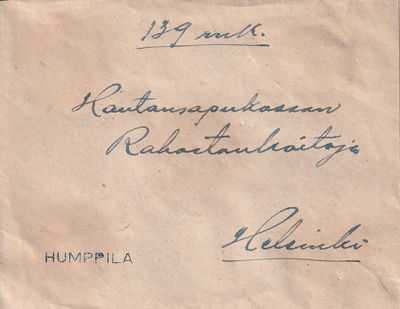 139 mk.
Hautausapukassan
Rahastonhoitaja
Helsinki
HUMPPILA